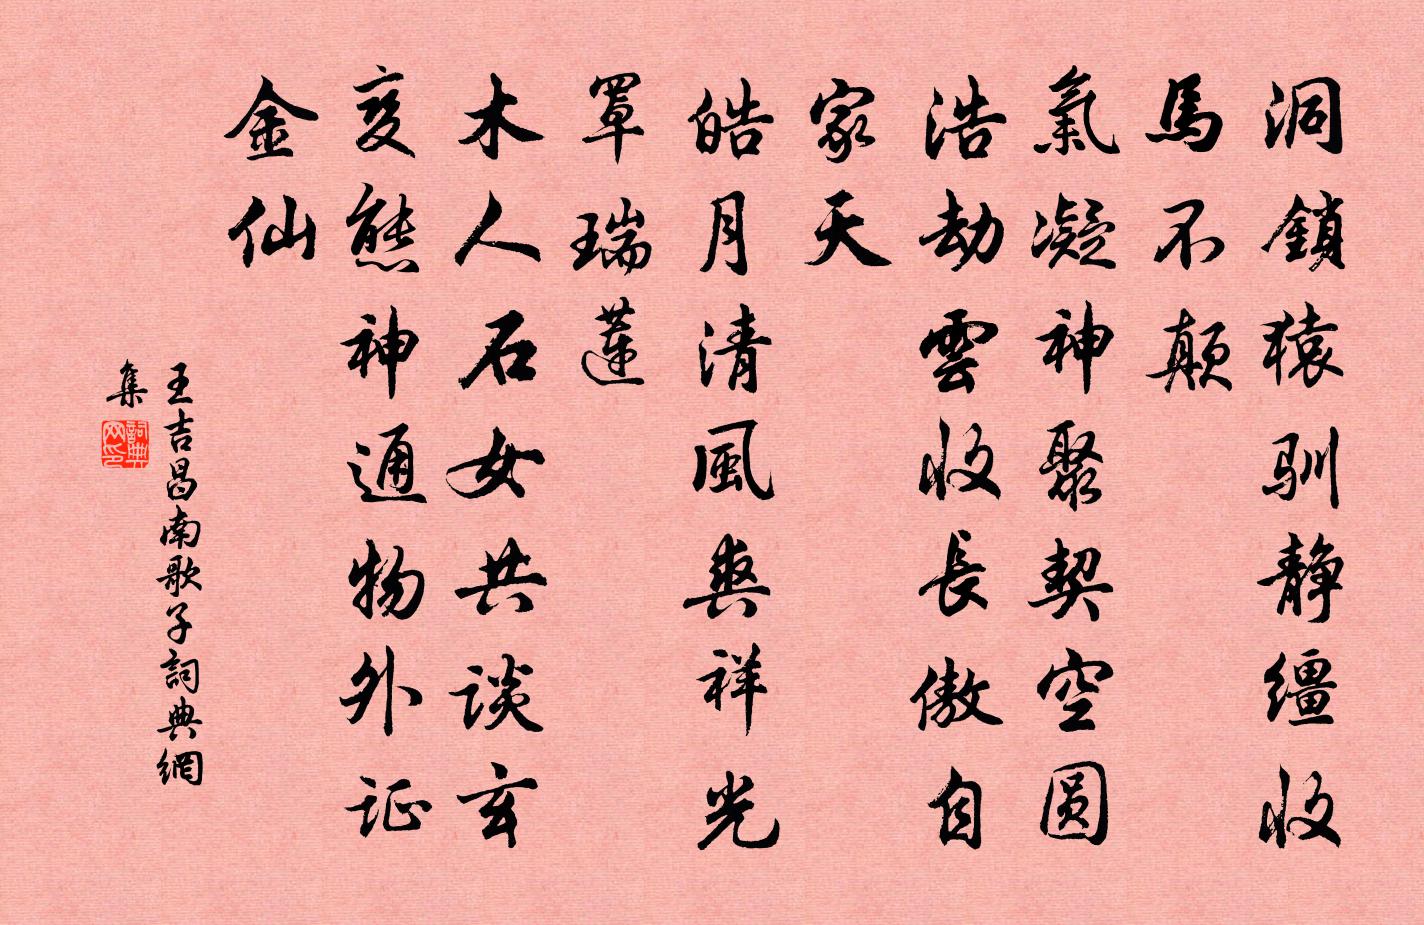 洞鎖猿馴靜繮收
馬不顛
氣凝神聚契空圓
浩劫雲收長傲自
家天
皓月清風爽祥光
罩瑞蓮
木人石女共談玄
変態神通物外证
金仙
王吉昌南歌子詞典網
集
詞典网印